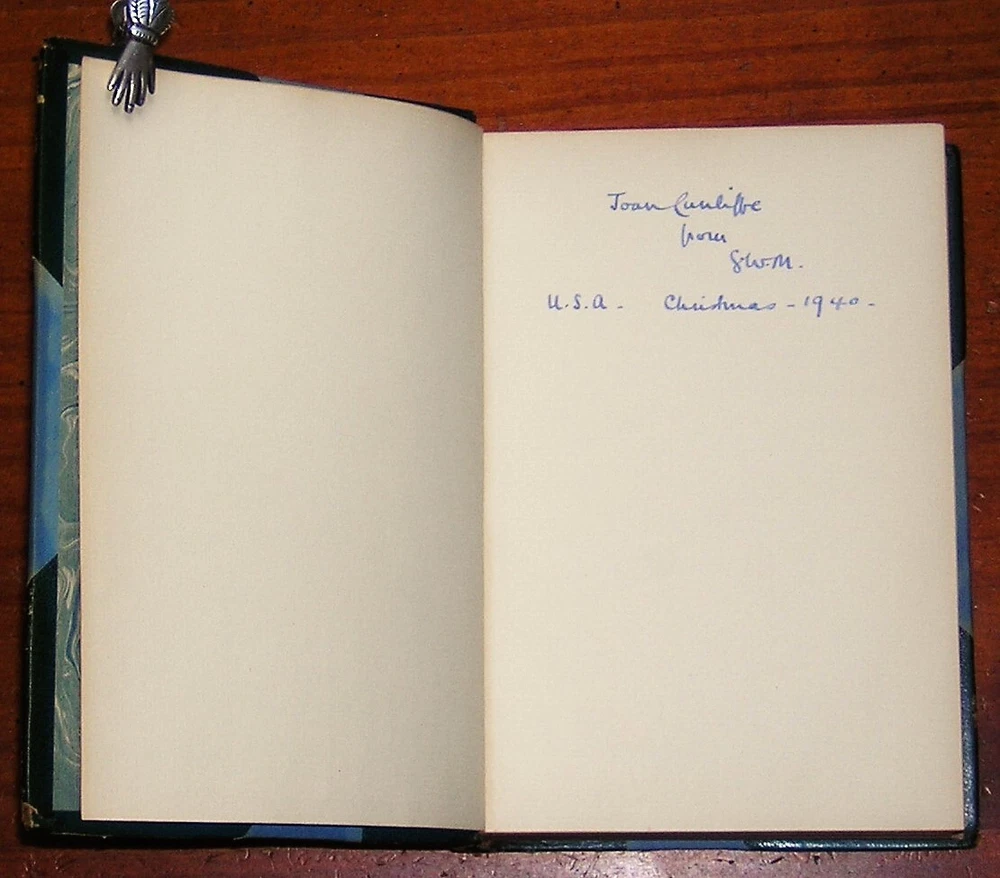 Joan Cunliffe
from
G.W.M.
U.S.A. - Christmas - 1940 -